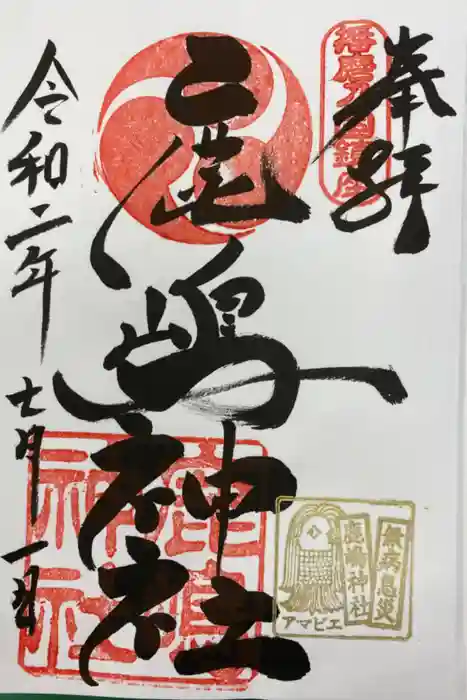 奉拝
播磨乃国鎮座
鹿嶋神社
鹿嶋神社
令和二年
七月一日
無病息災
鹿嶋神社
アマビエ